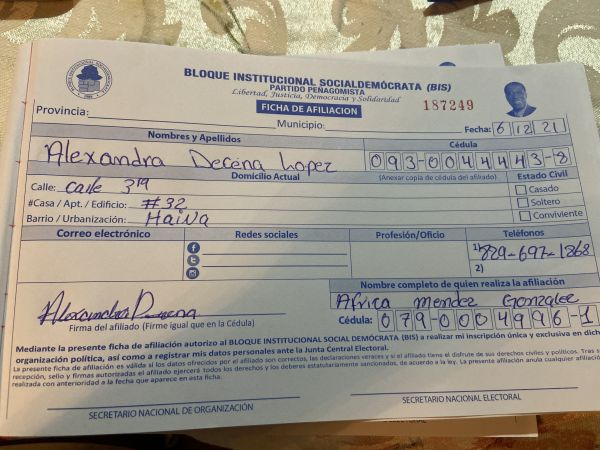 BLOQUE INSTITUCIONAL SOCIALDEMÓCRATA (BIS)
PARTIDO PEÑAGOMISTA
Libertad, Justicia, Democracia y Solidaridad
FICHA DE AFILIACION
187249
Provincia:
Municipio:
Fecha: 6/12/21
Nombres y Apellidos
Cédula
Alexandra Decena Lopez
093-0044443-8
Domicilio Actual
(Anexar copia de cédula del afiliado)
Estado Civil
Calle: calle 3ra
Casado
#Casa / Apt. / Edificio: #32
Soltero
Barrio / Urbanización: Haina
Conviviente
Correo electrónico
Redes sociales
Profesión/Oficio
Teléfonos
1) 829-697-1868
2)
Nombre completo de quien realiza la afiliación
Africa Mendez Gonzalee
Alexandra Decena
Firma del afiliado (Firme igual que en la Cédula)
Cédula: 079-0004996-1
Mediante la presente ficha de afiliación autorizo al BLOQUE INSTITUCIONAL SOCIAL DEMÓCRATA (BIS) a realizar mi inscripción única y exclusiva en dich
organización política, así como a registrar mis datos personales ante la Junta Central Electoral.
La presente ficha de afiliación es válida si los datos ofrecidos por el afiliado son correctos, las declaraciones veraces y si el afiliado tiene el disfrute de sus derechos civiles y políticos. Tras s
recepción, sello y firmas autorizadas el afiliado ejercerá todos los derechos y los deberes estatutariamente sancionados, de acuerdo a la ley. La presente afiliación anula cualquier afiliación
realizada con anterioridad a la fecha que aparece en esta ficha.
SECRETARIO NACIONAL DE ORGANIZACIÓN
SECRETARIO NACIONAL ELECTORAL